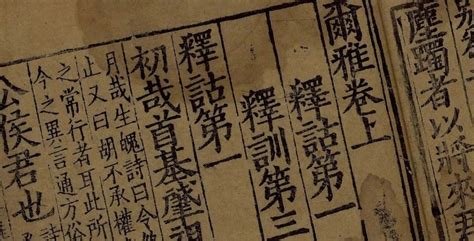 塵躅者以將來君
爾雅卷上
釋詁第一
釋訓第三
釋詁第一
初哉首基肇祖
月哉生魄詩曰令
止又曰胡不承權
之常行者耳此所
今之異言通方俗
公侯君也